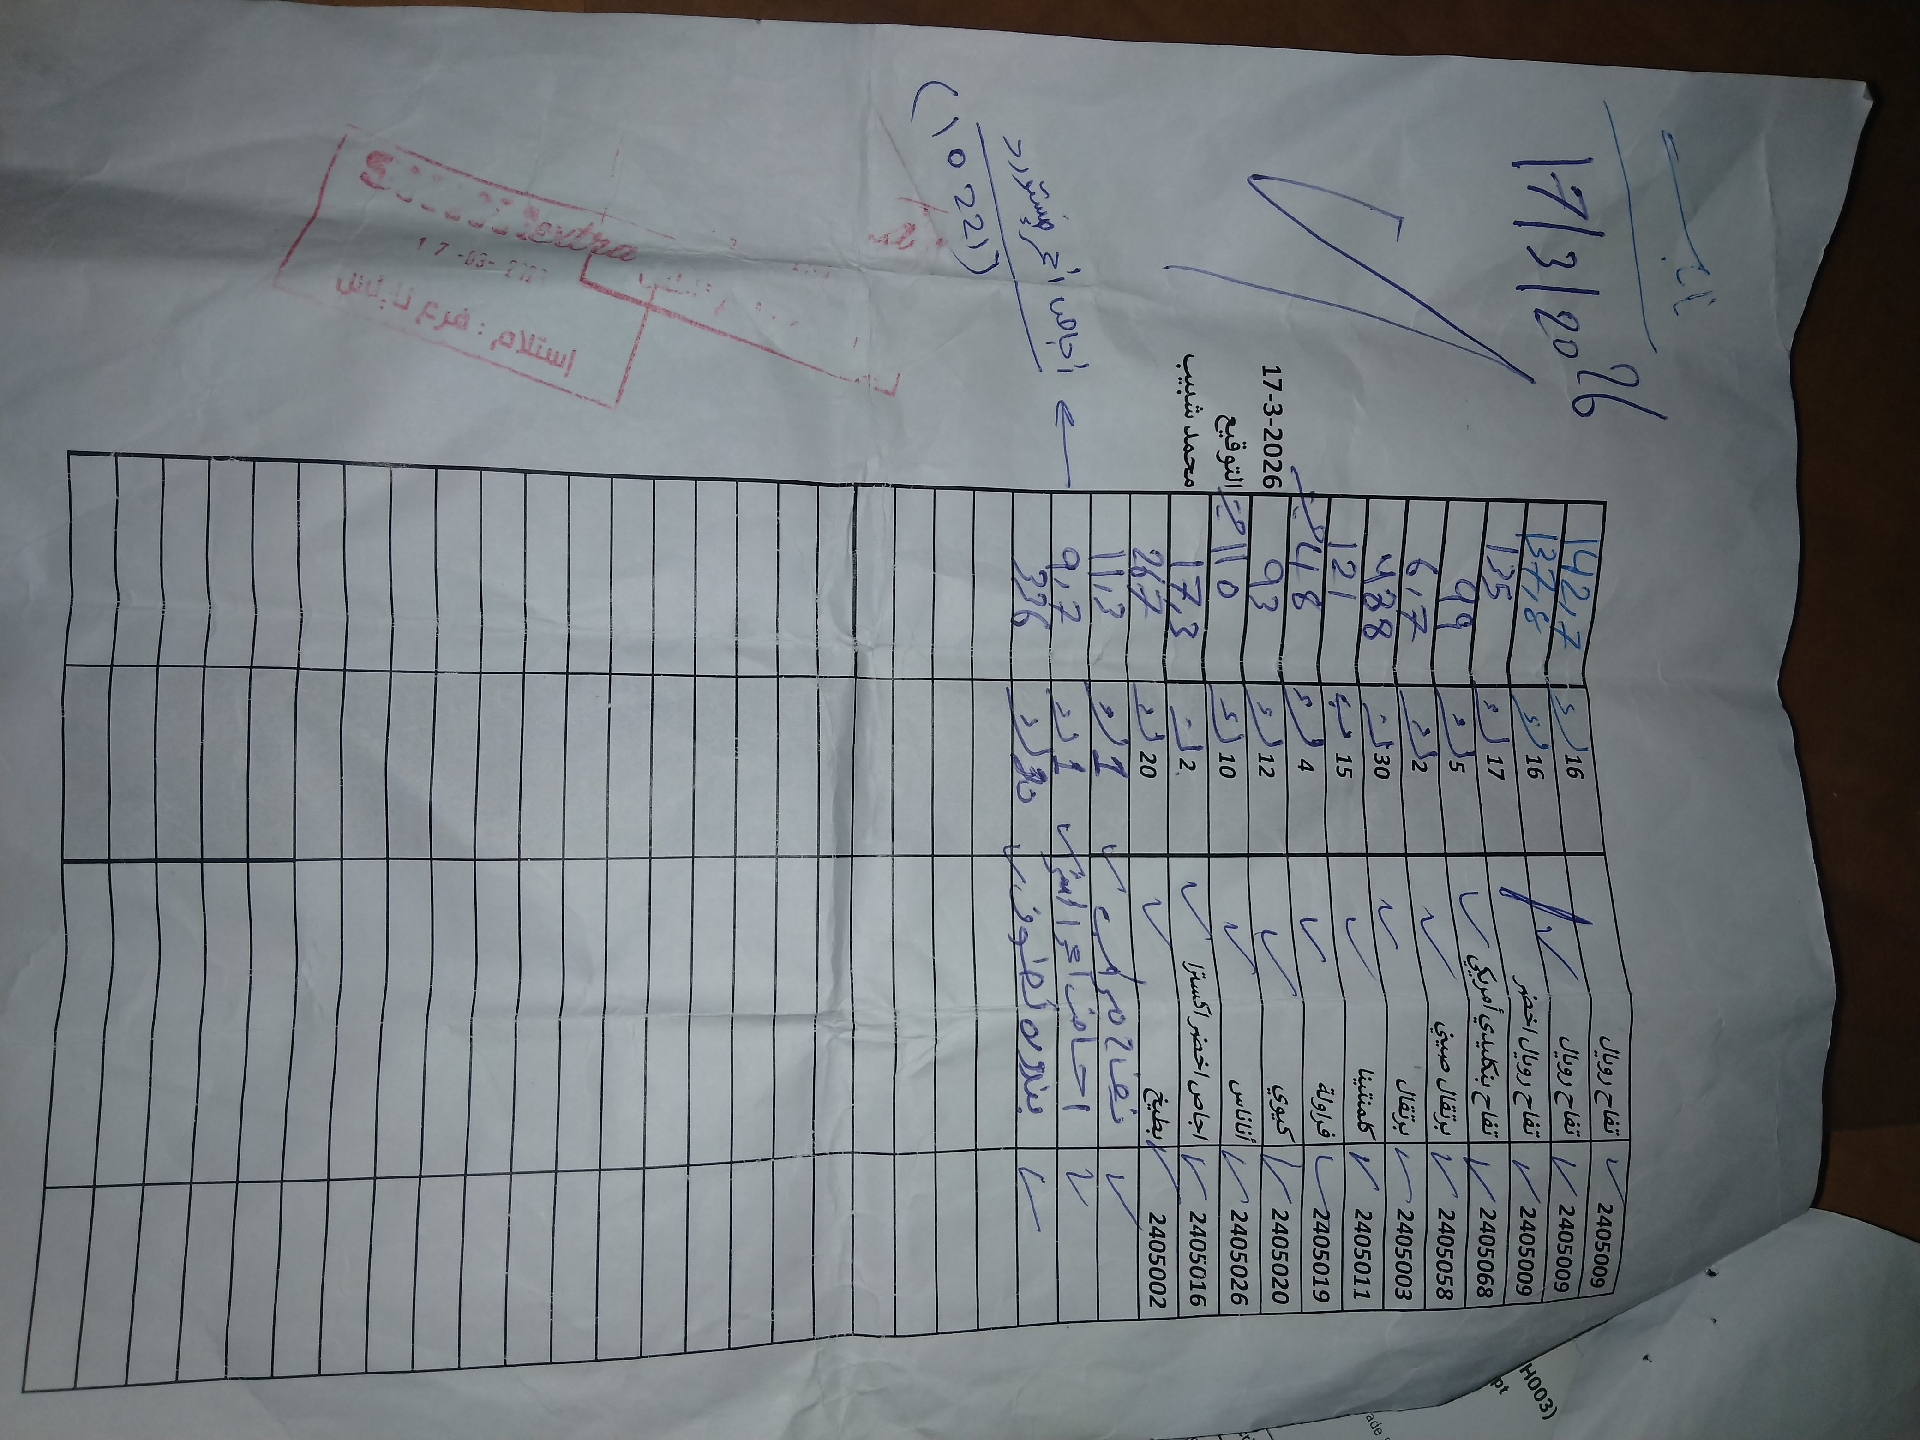 نابلس
17/3/2026
17-3-2026
التوقيع
محمد شبيب
2405009 تفاح رويال 16 142,7
2405009 تفاح رويال 16 137,8
2405009 تفاح رويال اخضر 17 135
2405068 تفاح بنكليدي أمريكي 5 49
2405058 برتقال صيني 2 6,7
2405003 برتقال 30 438
2405011 كلمنتينا 15 121
2405019 فراولة 4 418
2405020 كيوي 12 93
2405026 أناناس 10 110
2405016 اجاص اخضر اكسترا 2 17,3
2405002 بطيخ 20 267
تفاح 1 11,3
1 9,7
بندورة 336
← اجاص احمر مستورد
(10221)
extra
17-03-
إستلام : فرع نابلس
H003)
pt